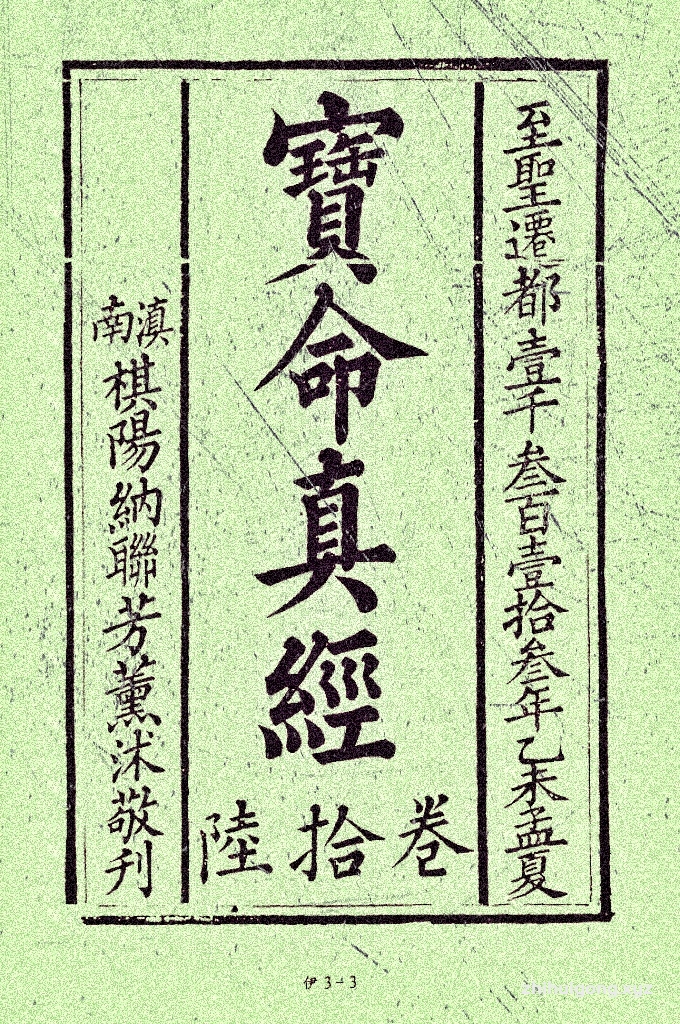 至聖遷都壹千叁百壹拾叁年乙未孟夏
寶命真經
卷拾陸
滇南棋陽納聯芳薰沐敬刊
伊 3-3